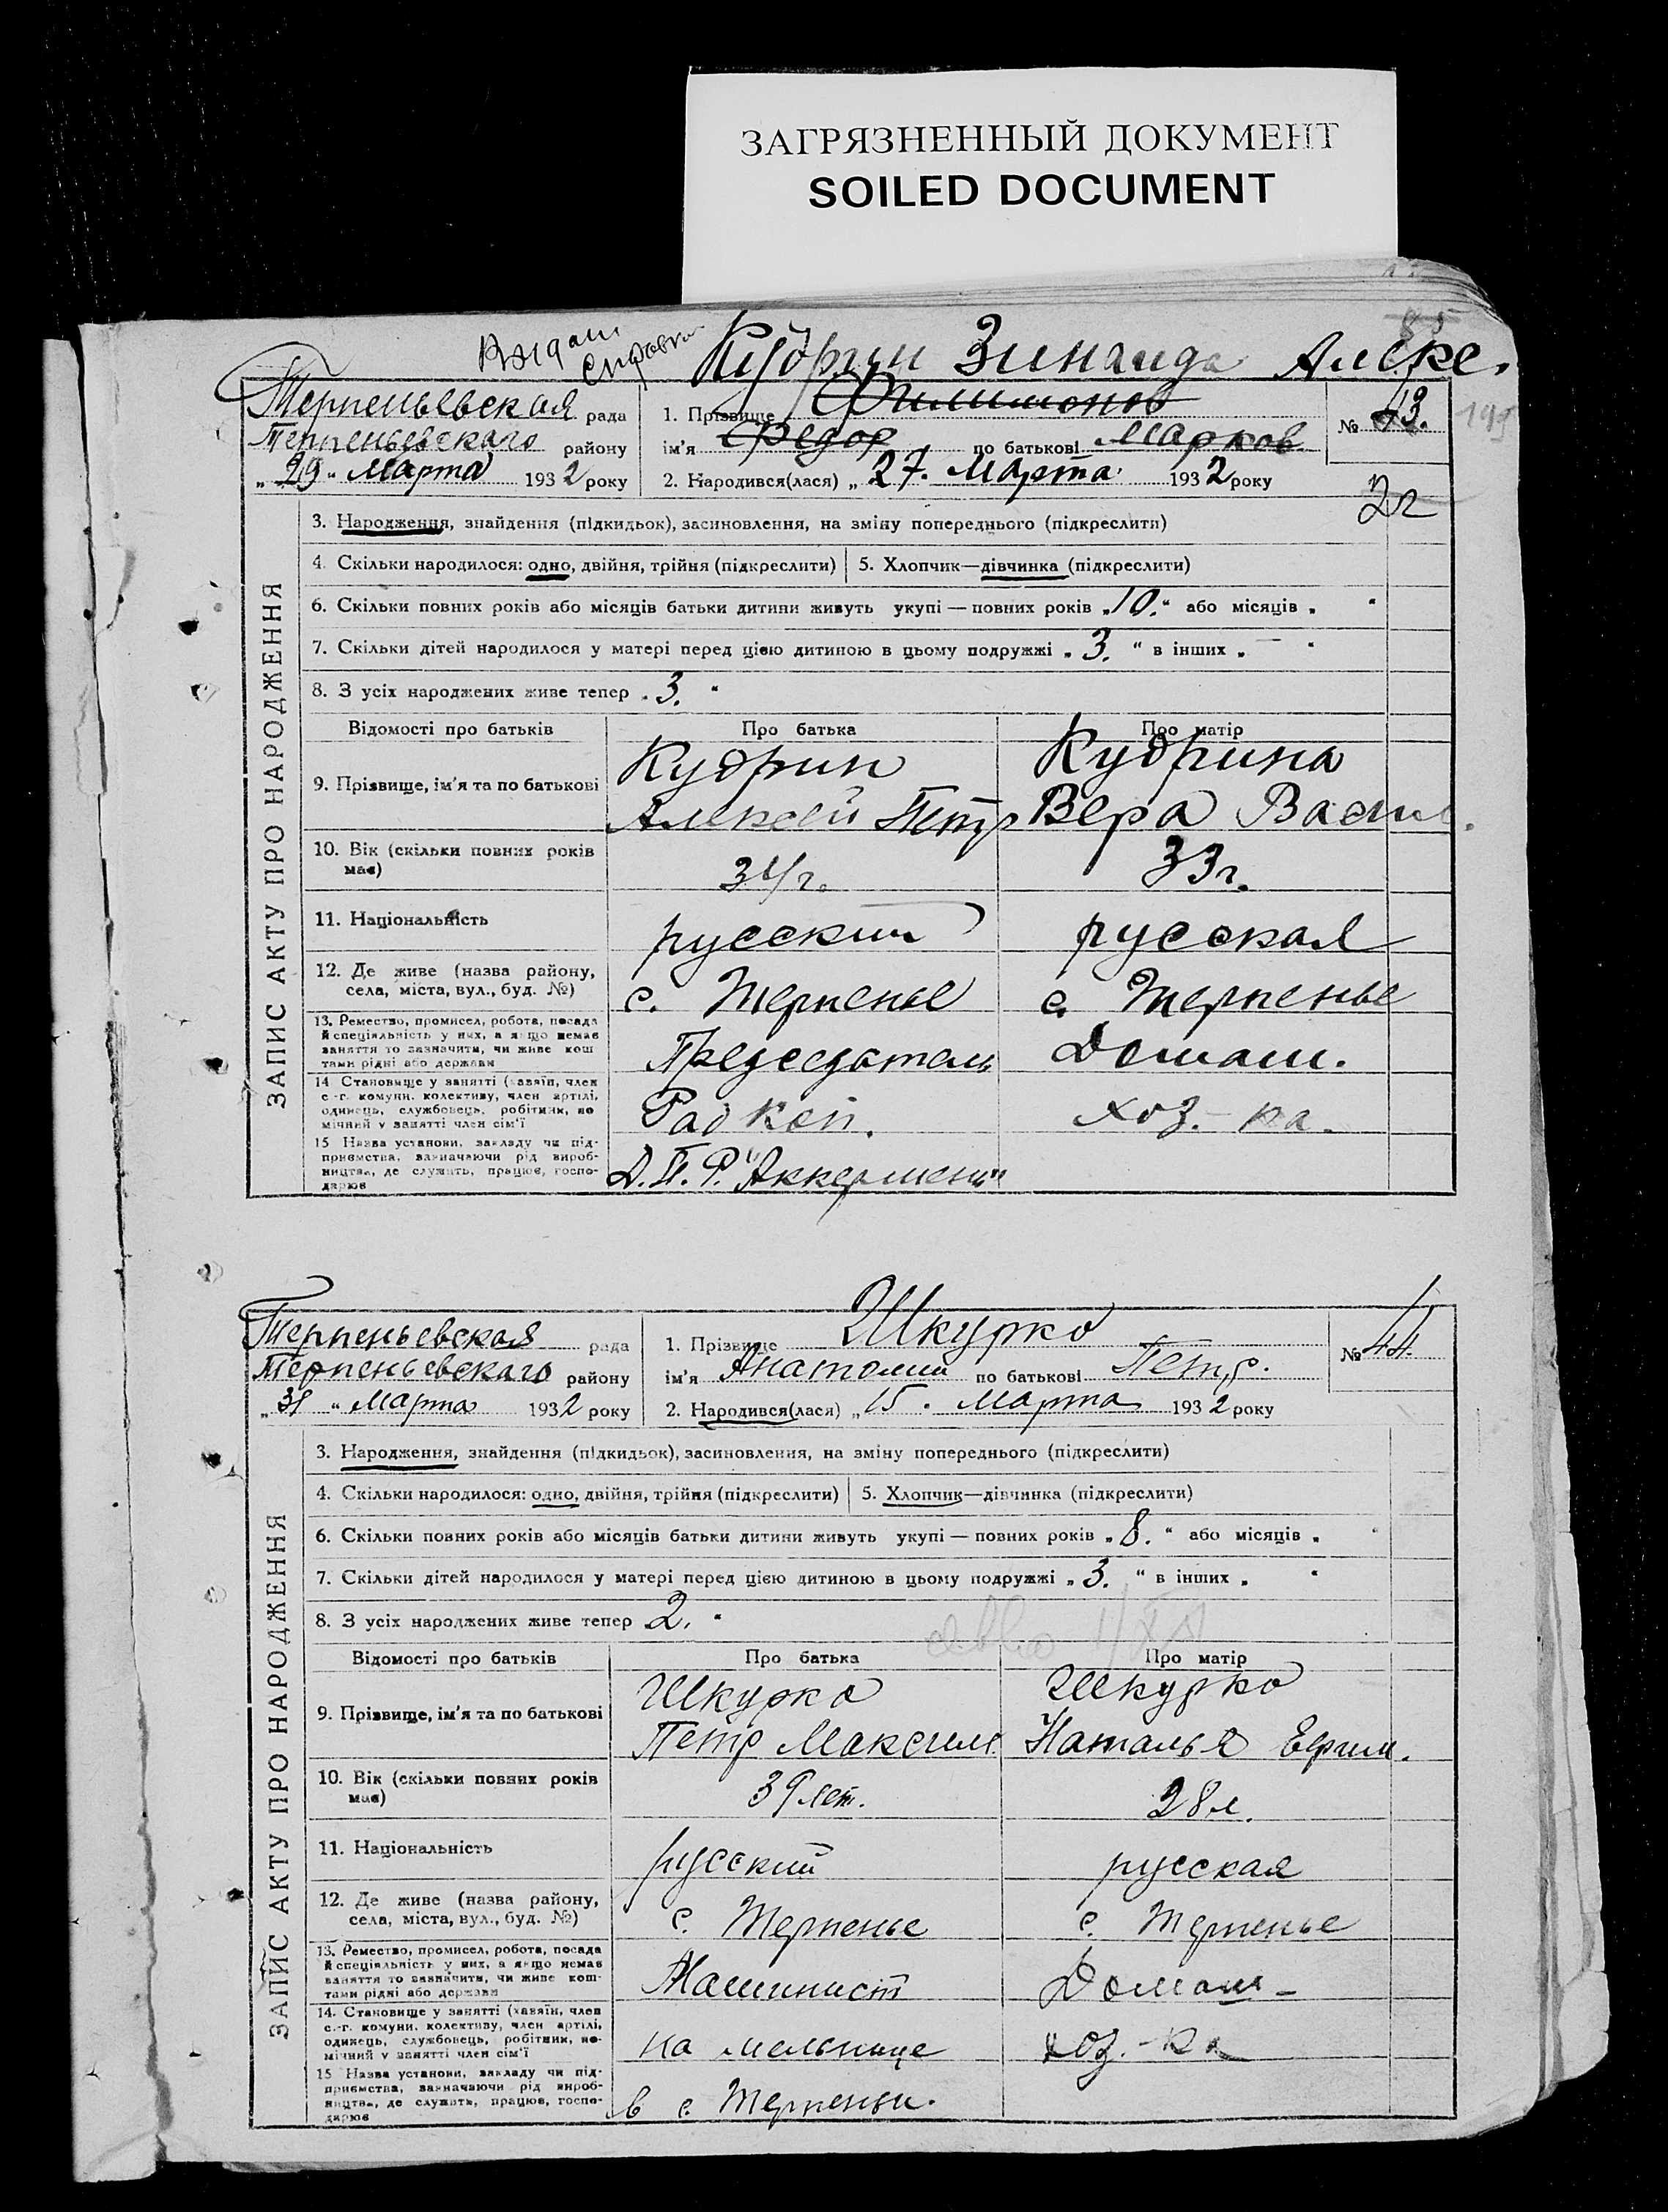 ЗАГРЯЗНЕННЫЙ ДОКУМЕНТ
SOILED DOCUMENT
Зинаида Алекс.
Терпеньевская рада
Терпеньевскаго району
„29" Марта 1932 року
1. Прізвище Филимонов
ім'я Федор по батькові Марков
2. Народився(лася) „27. Марта 1932 року
№ 43.
2г
ЗАПИС АКТУ ПРО НАРОДЖЕННЯ
3. Народження, знайдення (підкидьок), засиновлення, на зміну попереднього (підкреслити)
4. Скільки народилося: одно, двійня, трійня (підкреслити)
5. Хлопчик—дівчинка (підкреслити)
6. Скільки повних років або місяців батьки дитини живуть укупі — повних років „10." або місяців „ "
7. Скільки дітей народилося у матері перед цією дитиною в цьому подружжі „3." в інших „ — "
8. З усіх народжених живе тепер „3. "
Відомості про батьків Про батька Про матір
9. Прізвище, ім'я та по батькові
Кудрин
Алексей Петр
Кудрина
Вера Васил.
10. Вік (скільки повних років має)
34г.
33г.
11. Національність
русский
русская
12. Де живе (назва району, села, міста, вул., буд. №)
с. Терпенье
с. Терпенье
13. Ремество, промисел, робота, посада й спеціяльність у них, а якщо немає заняття то зазначити, чи живе коштами рідні або держави
Председатель
Домаш.
14. Становище у занятті (хазяїн, член с.-г. комуни, колективу, член артілі, одинець, службовець, робітник, помічний у занятті член сім'ї
хоз.-ка.
15. Назва установи, закладу чи підприємства, зазначаючи рід виробництва, де служить, працює, господарює
Терпеньевская рада
Терпеньевскаго району
„31" Марта 1932 року
1. Прізвище Шкурко
ім'я Анатолий по батькові Петр.
2. Народився(лася) „15. Марта 1932 року
№ 44.
ЗАПИС АКТУ ПРО НАРОДЖЕННЯ
3. Народження, знайдення (підкидьок), засиновлення, на зміну попереднього (підкреслити)
4. Скільки народилося: одно, двійня, трійня (підкреслити)
5. Хлопчик—дівчинка (підкреслити)
6. Скільки повних років або місяців батьки дитини живуть укупі — повних років „8." або місяців „ "
7. Скільки дітей народилося у матері перед цією дитиною в цьому подружжі „3." в інших „ "
8. З усіх народжених живе тепер 2. "
Відомості про батьків Про батька Про матір
9. Прізвище, ім'я та по батькові
Шкурко
Петр Максим.
Шкурко
Наталья Ефим.
10. Вік (скільки повних років має)
39 лет.
28 л.
11. Національність
русский
русская
12. Де живе (назва району, села, міста, вул., буд. №)
с. Терпенье
с. Терпенье
13. Ремество, промисел, робота, посада й спеціяльність у них, а якщо немає заняття то зазначити, чи живе коштами рідні або держави
Машинист
Домаш-
14. Становище у занятті (хазяїн, член с.-г. комуни, колективу, член артілі, одинець, службовець, робітник, помічний у занятті член сім'ї
на мельнице
хоз.-ка
15. Назва установи, закладу чи підприємства, зазначаючи рід виробництва, де служить, працює, господарює
в с. Терпеньи.